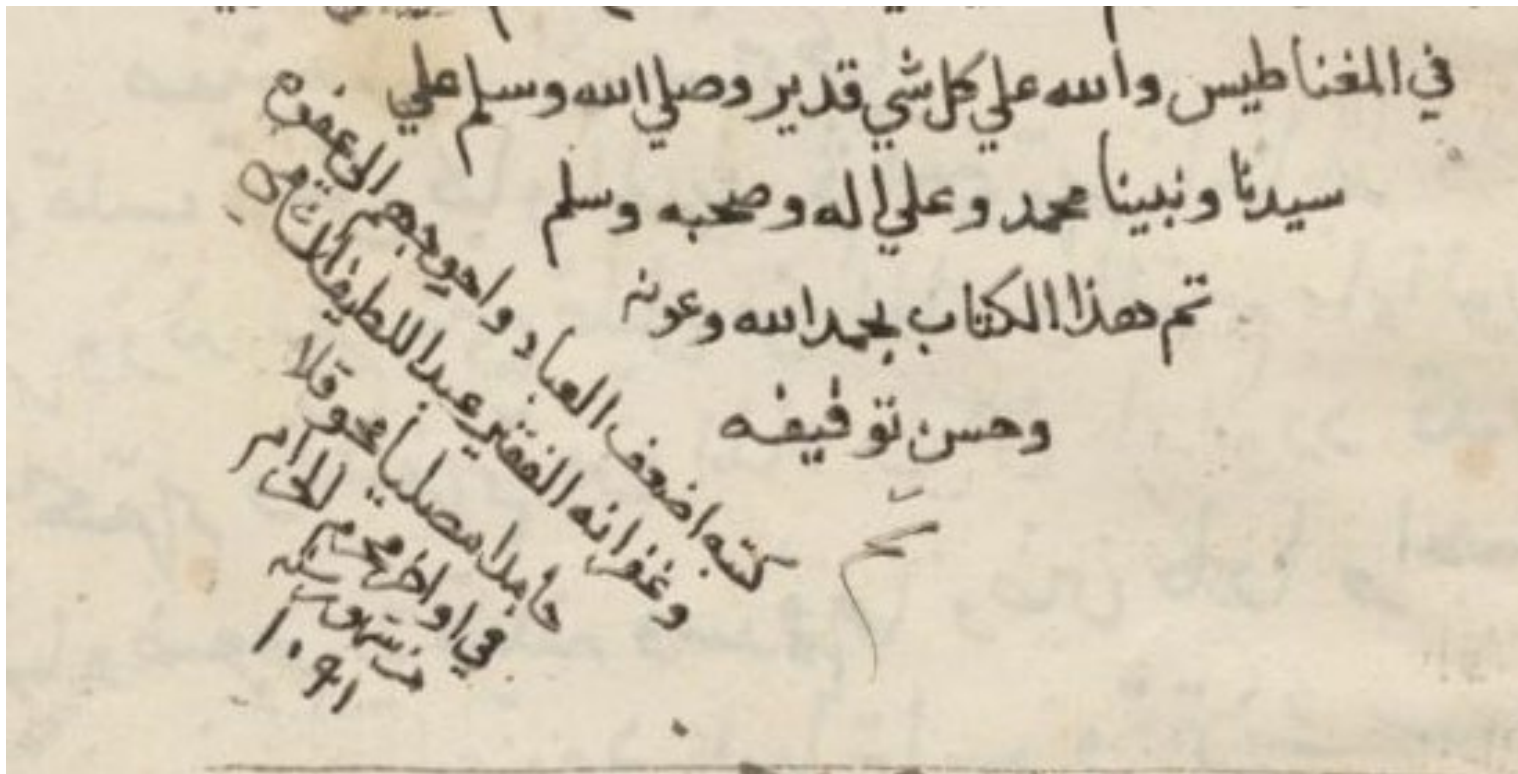 في المغناطيس والله علي كل شي قدير وصلي الله وسلم علي
سيدنا ونبينا محمد وعلي اله وصحبه وسلم
تم هذا الكتاب بحمد الله وعونه
وحسن توفيقه
كتبه اضعف العباد واحوجهم الى عفوه
وغفرانه الفقير عبد اللطيف
حامدا مصليا محوقلا
في اواخر محرم الحرام
من شهور سنه
١٠٩١